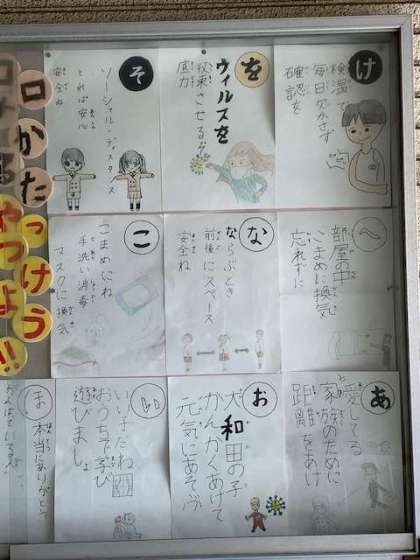 け
検温で
毎日欠かせず
確認を
を
ウィルスを
収束させるぞ
底力
そ
ソーシャル・ディスタンス
とれば安心
安全ね
へ
部屋の中
こまめに換気
忘れずに
な
ならぶとき
前後にスペース
安全ね
こ
こまめにね
手洗い消毒
マスクに換気
あ
愛してる
家族のために
距離をあけ
お
大和田の子
かんかくあけて
元気にあそぶ
い
いい子だね
おうちで学び
遊びましょ
ほ
本当にありがとう
コロナ
かた
やっつけろ
!!